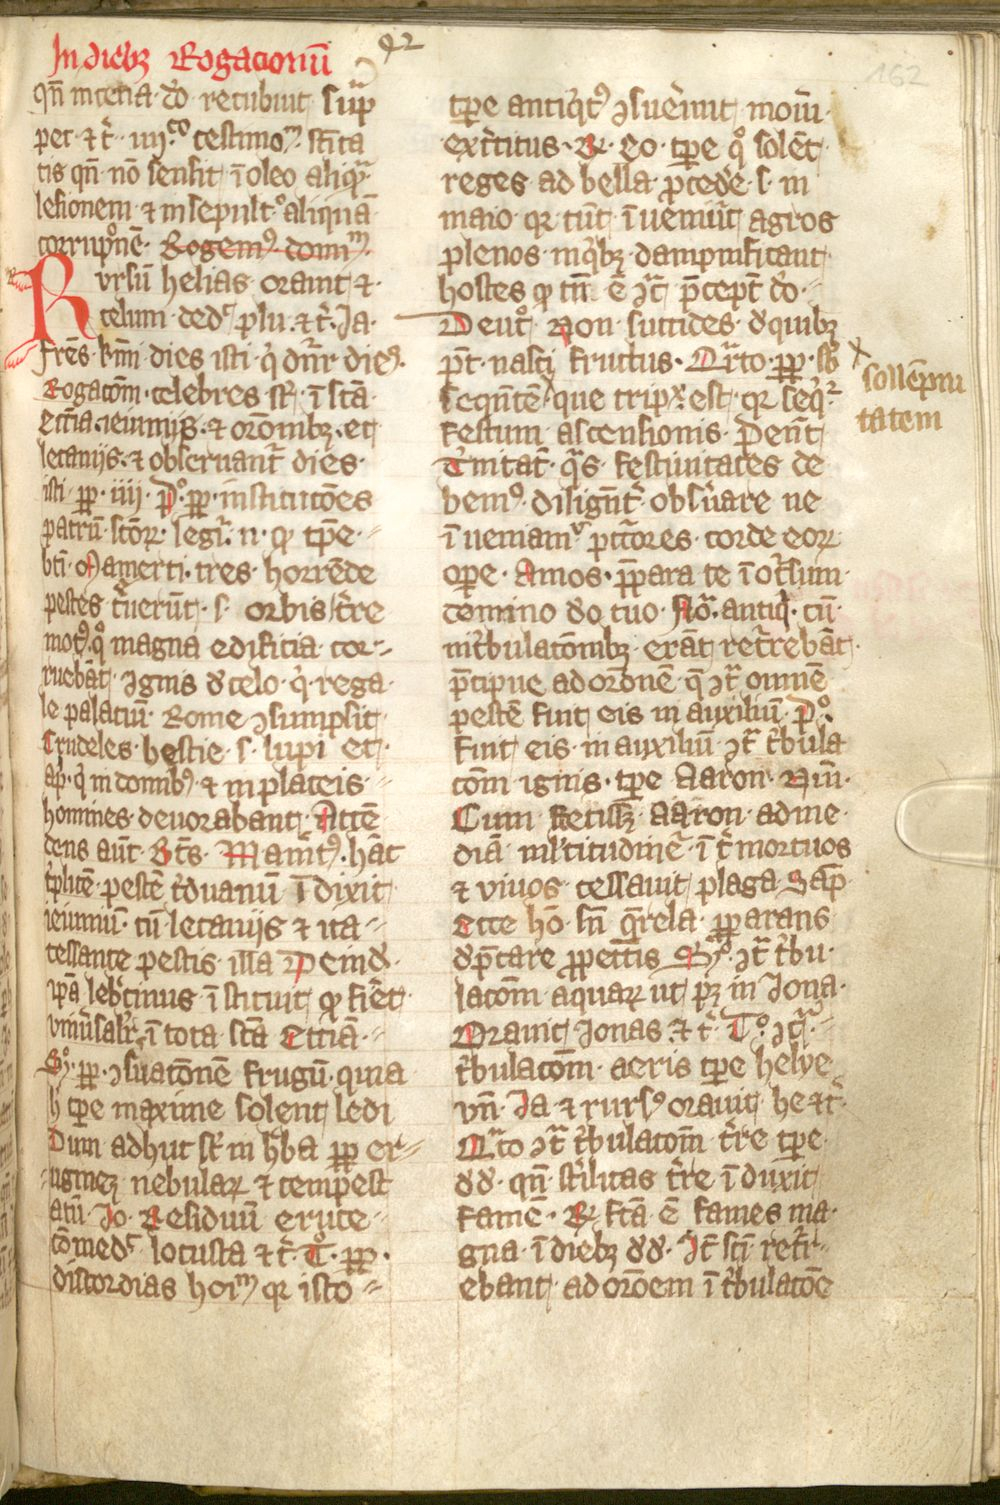 In dieb3 Rogacionū
92
162
qn̄ in cena dō recubuit sup̄
pec ⁊ c̄ iiij.co testimom. sc̄ita
tis qn̄ nō sensit ī oleo aliqua
lesionem ⁊ in sepultᵒ aliquā
corrupᵒnē. Rogemꝰ domm.
Rursū helias orauit ⁊
celum ded plu. ⁊ c̄. Ja.
fr̄es km̄i dies isti q̇ dn̄r dieꝰ.
Rogacōm celebres st̄ ī scā
ecc̄ia. ieiuniis. ⁊ orōnib3. et
letaniis. ⁊ obseruant̄ dies
isti ꝓꝑ. iiij. pᵒ. ꝓꝑ. institucōes
patrū scōꝝ. legit̄. n. ꝙ tp̄e
bt̄i Mamerti. tres horrēde
pestes fuerūt. s. orbis t̄re
motꝰ. qᵒ magna edificia cor-
ruebāt. Ignis d̓ celo. q̇ rega
le palaciū Rome ↄsumpsit
Crudeles bestie. s. lupi et
ap̄. q̇ in domibꝰ ⁊ in plateis
homines deuorabant. Atte
dens aūt. Bt̄s. Mam̄tꝰ. hāc
t̓plicē pestē t̓duanū īdixit
ieiuniū. cū letaniis ⁊ ita
cessante pestis illa Deind̓
ip̄a leb̓tinus īstituit ꝙ fiet
vniūsalr̄ ī tota scā Ecc̄iā
Sᵒ. ꝓꝑ. ↄsuacōnē frugū. quia
h̓ tp̄e maxime solent ledi
Dum adhuc st̄ in h̓ba ꝓꝑ er-
uginez nebulaꝝ ⁊ tempest
atū. Jo. Residuū eruce
cōmed locusta ⁊ c̄. Tᵒ. ꝓꝑ.
discordias hoim qꝛ isto
tp̄e antiqtꝰ ↄsueuit moū
exercitus. R. Eo tp̄e qᵒ solēt
reges ad bella ꝓcede. s. in
maio qꝛ tūc īueniūt agros
plenos. in qb3. dampnificant
hostes ꝙ tn̄ ē ↄᵃ p̄cept dō
Deut. Non succides d̓ quib3
pn̄t nasci fructus. Qrto ꝓꝑ. sb
seqn̄tē que triplx est. qꝛ seqr̄
festum ascensionis. Pent
Trinitat̄. qs festiuitates de
bemꝰ diligent̄ obs̓uare ne
īueniamr̄ pctōres corde eoꝝ
ope. Amos. p̄para te ī occ̄sum
domino dō tuo. Nō. antiqᵒ. cū
in tribulacōnib3. erāt recurrebāt
p̄cipue ad oronē q̄ ↄᵃ omnē
pestē fuit eis in auxiliū. Pᵒ.
fuit eis in auxiliū ↄᵃ t̓bula
cōm ignis. tp̄e Aaron. Nū.
Cum stetiss3 Aaron ad me
diā mltitudinē īt̓ mortuos
⁊ viuos cessauit plaga Sap̄
Ecce hō sn̄ qrela. ꝓꝑarans
dp̄care ꝓpeccīs Sᵒ. ↄᵃ t̓bu
lacōm aquaꝝ ut pꝫ in Jona
Orauit Jonas. ⁊ c̄ Tᵒ. ↄᵃ.
t̓bulacōm aeris tp̄e helye
vn̄. Ja ⁊ rursꝰ orauit he ⁊ c̄
Qrto ↄᵃ t̓bulacōm t̄re tp̄e
dd. qn̄ st̓ilitas t̄re īduxit
famē. R. fcā ē fames ma
gna. ī dieb3 dd. It̄ sc̄i recur
ebant ad orōem ī t̓bulacōe
sollēpni
tatem